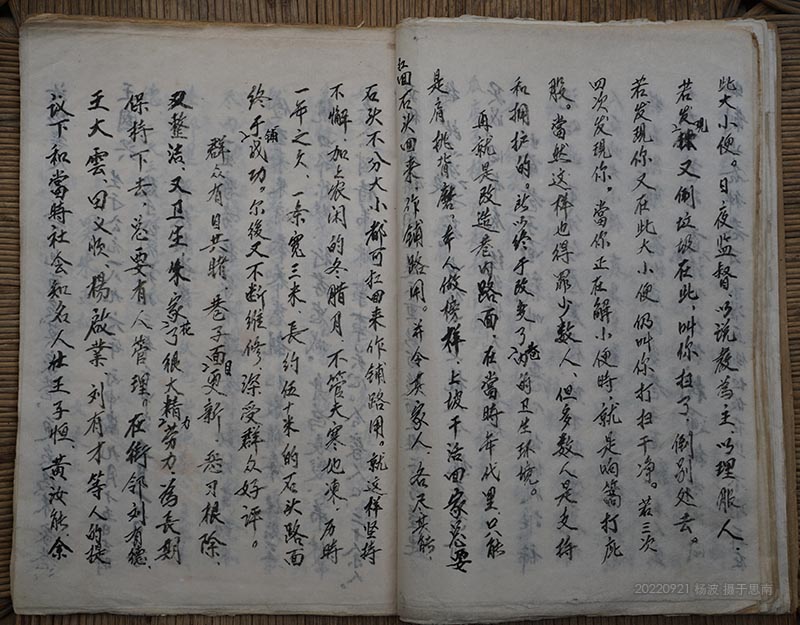 此大小便。日夜监督、以说教為主、以理服人、
若发现又倒垃圾在此,叫你扫了,倒别处去。
若发现你又在此大小便仍叫你打扫干净。若三次
四次发现你。當你正在解小便時,就是响篙打屁
股。當然这样也得罪少数人、但多数人是支持
和拥护的。所以终于改变了巷内的卫生环境。
再就是改造巷内路面,在當時年代里只能
是肩挑背䭾,本人做榜样,上坡干活回家总要
扛回石头回来,作铺路用。并令其家人、各尽其能,
石头不分大小都可扛回来作铺路用。就这样坚持
不懈 加上农闲的冬腊月、不管天寒地冻,历時
一年之久、一条宽三米、長约伍十米的石头路面
终于铺成功。尔後又不断维修,深受群众好评。
群众有目共睹,巷子面目更新,恶习根除,
又整洁,又卫生朱家花了很大精力劳力,為長期
保持下去,总要有人管理。在街邻刘有德、
王大雲 田义顺 楊啟業、刘有才等人的提
议下和當時社会知名人仕王子恒、黄汝能余
20220921 杨波 摄于思南